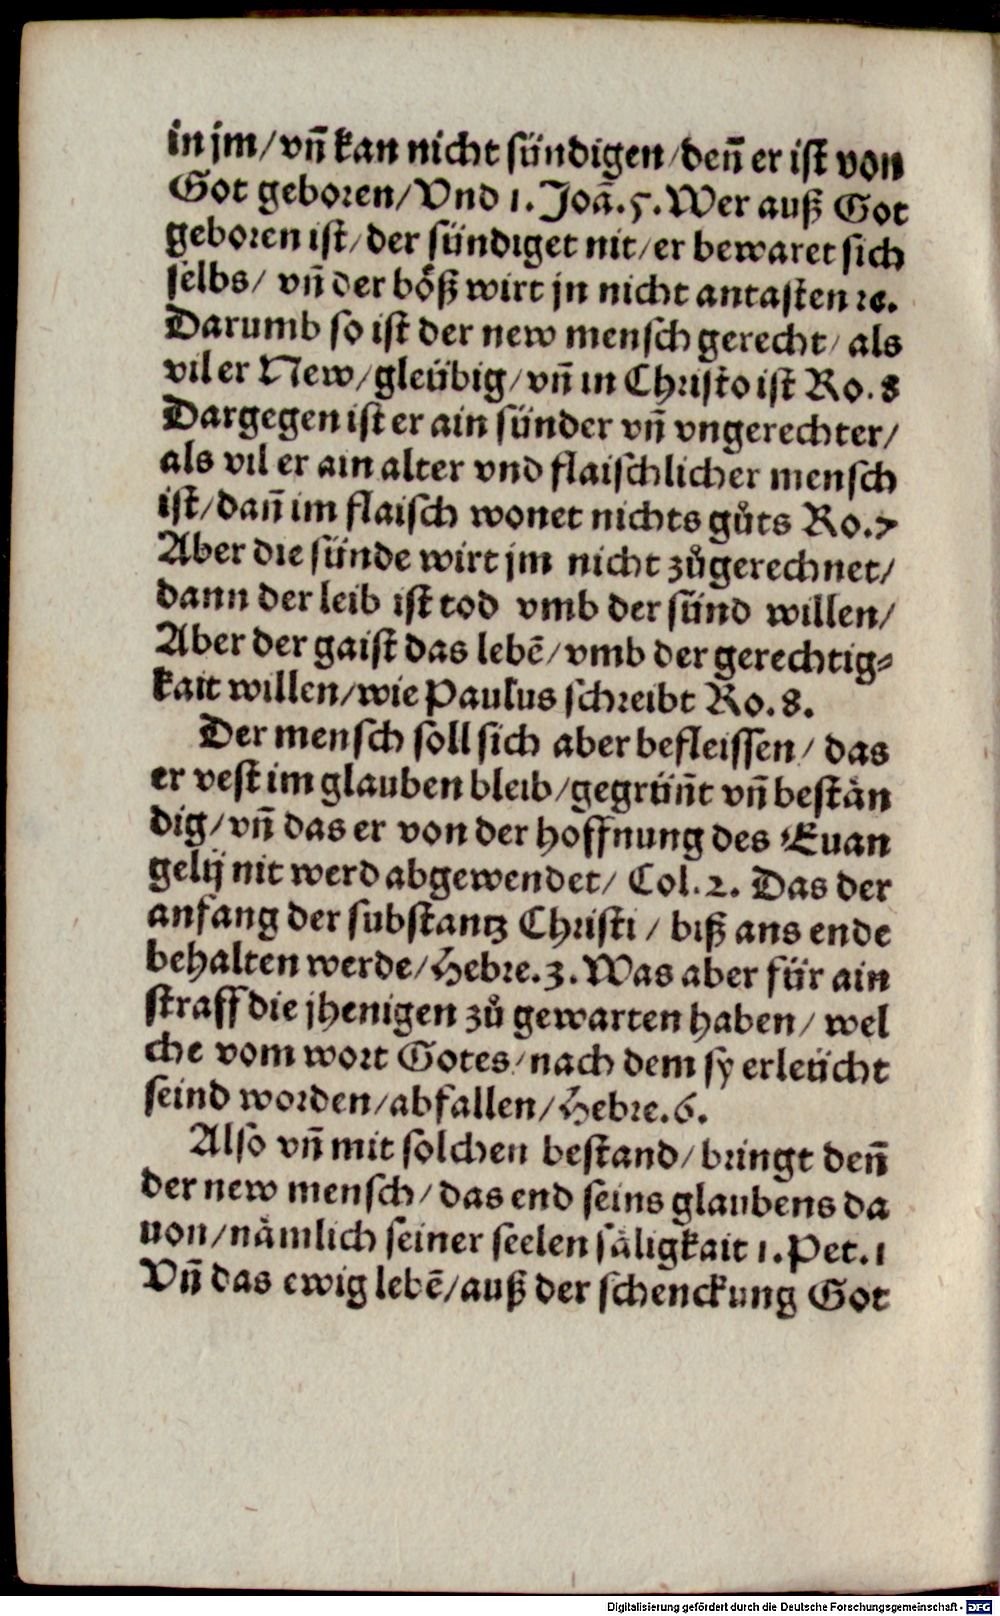 in jm/ vñ kan nicht sündigen/ deñ er ist von
Got geboren/ Vnd 1. Joã. 5. Wer auß Got
geboren ist/ der sündiget nit/ er bewaret sich
selbs/ vñ der böß wirt jn nicht antasten ꝛc.
Darumb so ist der new mensch gerecht/ als
vil er New/ gleübig/ vñ in Christo ist Ro. 8
Dargegen ist er ain sünder vñ vngerechter/
als vil er ain alter vnd flaischlicher mensch
ist/ dañ im flaisch wonet nichts gůts Ro. 7
Aber die sünde wirt jm nicht zůgerechnet/
dann der leib ist tod vmb der sünd willen/
Aber der gaist das lebē/ vmb der gerechtig⸗
kait willen/ wie Paulus schreibt Ro. 8.
Der mensch soll sich aber befleissen/ das
er vest im glauben bleib/ gegrüñt vñ bestän
dig/ vñ das er von der hoffnung des Euan
gelij nit werd abgewendet/ Col. 2. Das der
anfang der substantz Christi/ biß ans ende
behalten werde/ Hebre. 3. Was aber für ain
straff die jhenigen zů gewarten haben/ wel
che vom wort Gotes/ nach dem sy erleücht
seind worden/ abfallen/ Hebre. 6.
Also vñ mit solchen bestand/ bringt deñ
der new mensch/ das end seins glaubens da
uon/ nämlich seiner seelen säligkait 1. Pet. 1
Vñ das ewig lebē/ auß der schenckung Got
Digitalisierung gefördert durch die Deutsche Forschungsgemeinschaft - DFG